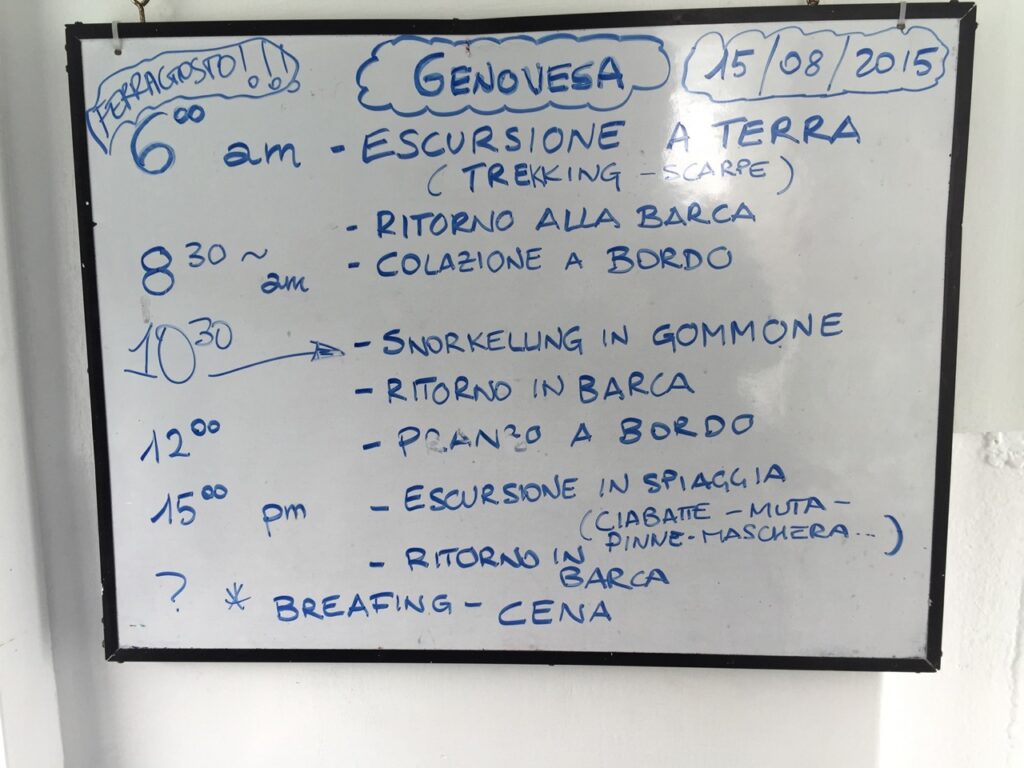 FERRAGOSTO!!! GENOVESA 15/08/2015
6⁰⁰ am - ESCURSIONE A TERRA
(TREKKING - SCARPE)
- RITORNO ALLA BARCA
8³⁰ ~ am - COLAZIONE A BORDO
10³⁰ → - SNORKELLING IN GOMMONE
- RITORNO IN BARCA
12⁰⁰ - PRANZO A BORDO
15⁰⁰ pm - ESCURSIONE IN SPIAGGIA
(CIABATTE - MUTA -
PINNE - MASCHERA...)
- RITORNO IN
BARCA
? * BREAFING - CENA